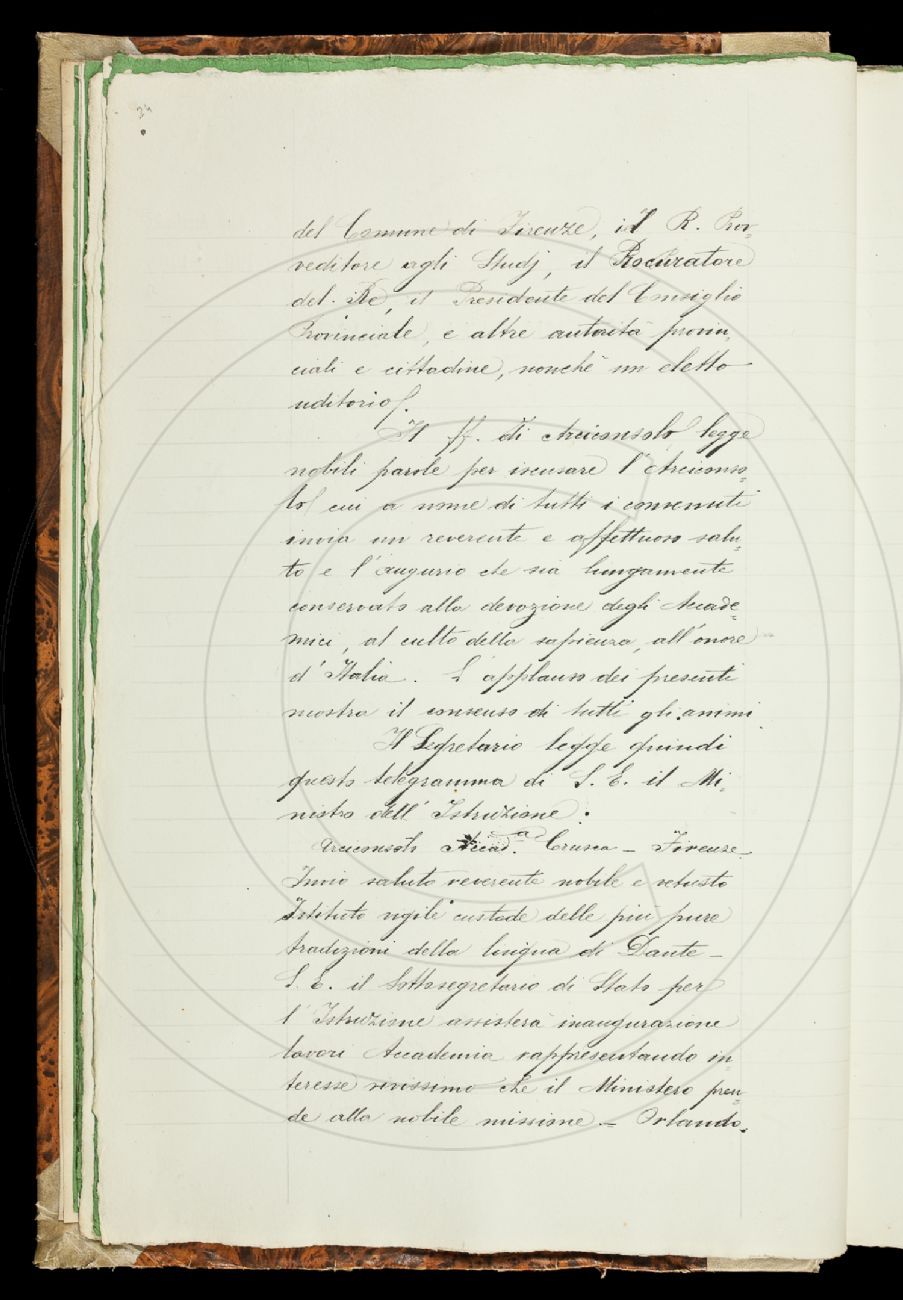 24
del Comune di Firenze, il R. Prov=
veditore agli Studj, il Procuratore
del Re, il Presidente del Consiglio
Provinciale, e altre autorità provin=
ciali e cittadine, nonchè un eletto
uditorio.
Il ff. di Arciconsolo legge
nobili parole per iscusare l'Arciconso=
lo cui a nome di tutti i convenuti
invia un reverente e affettuoso salu=
to e l'augurio che sia lungamente
conservato alla devozione degli Accade=
mici, al culto della sapienza, all'onore
d'Italia. L'applauso dei presenti
mostra il consenso di tutti gli animi.
Il Segretario legge quindi
questo telegramma di S. E. il Mi=
nistro dell'Istruzione:
Arciconsolo Accad.a Crusca – Firenze –
Invio saluto reverente nobile e vetusto
Istituto vigile custode delle più pure
tradizioni della lingua di Dante –
S. E. il Sottosegretario di Stato per
l'Istruzione assisterà inaugurazione
lavori Accademia rappresentando in=
teresse vivissimo che il Ministero pren=
de alla nobile missione. – Orlando.